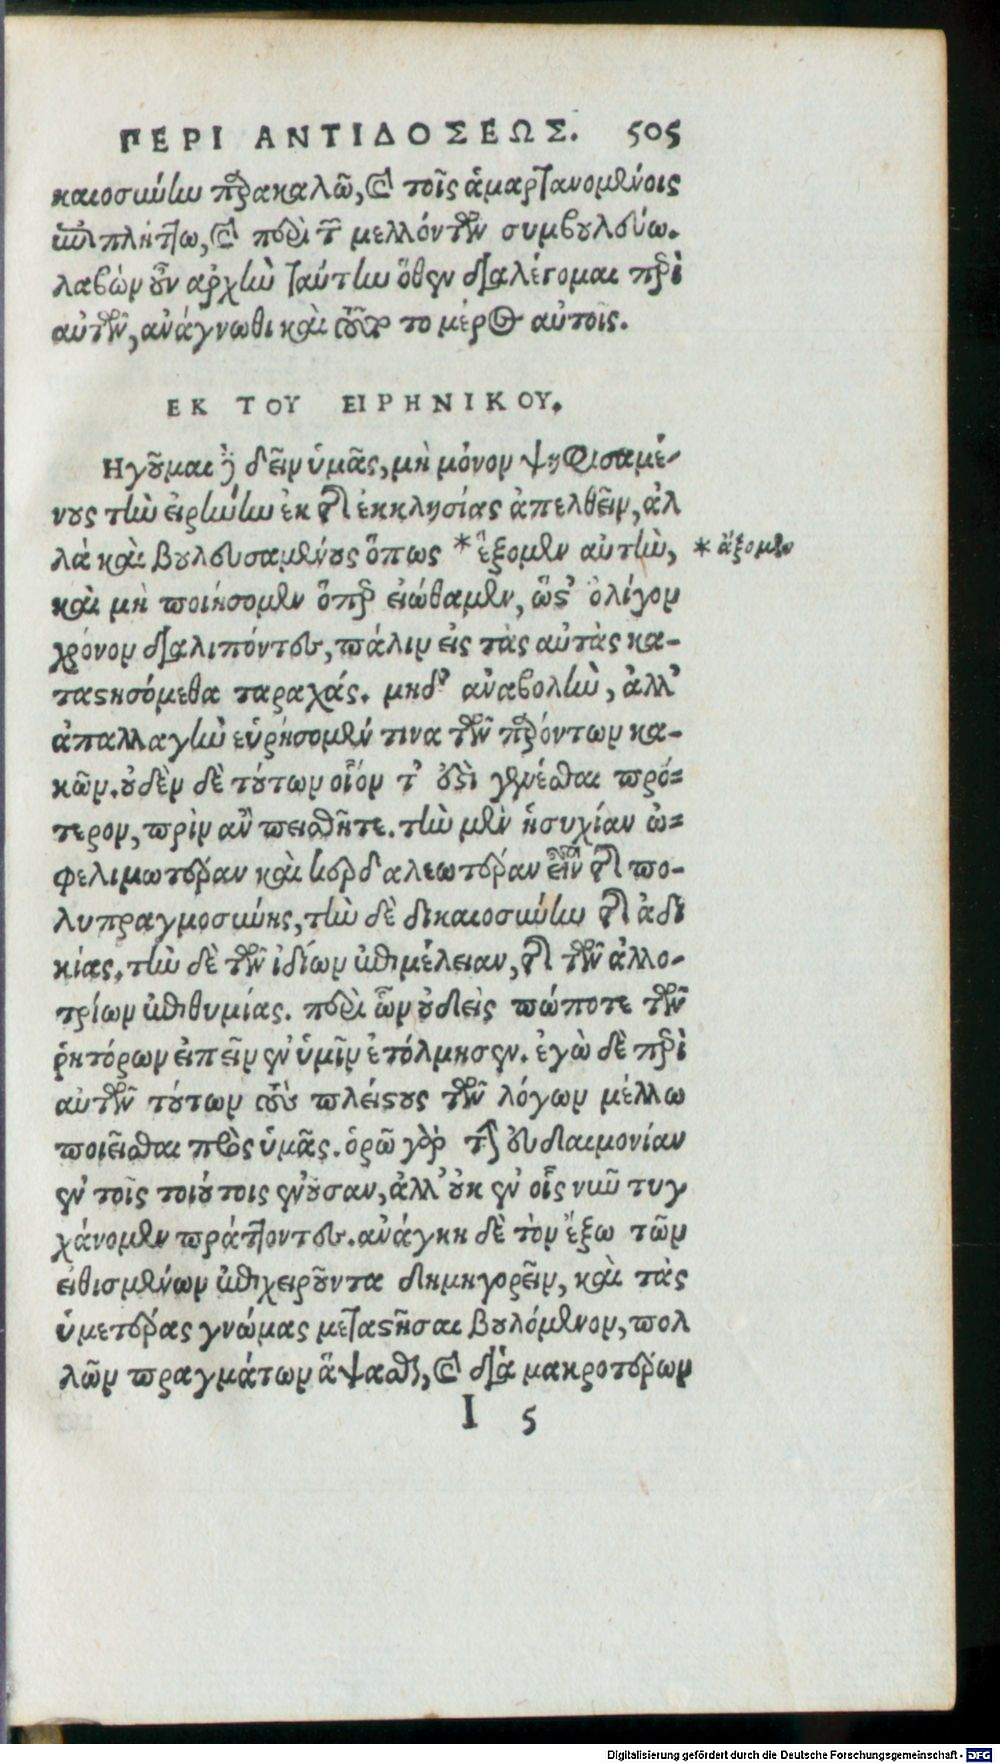 ΠΕΡΙ ΑΝΤΙΔΟΣΕΩΣ. 505
καιοσύνην παρακαλῶ, καὶ τοῖς ἁμαρτανομένοις
ἐπιπλήττω, καὶ περὶ τῶν μελλόντων συμβουλεύω.
λαβὼν οὖν ἀρχὴν ταύτην ὅθεν διαλέγομαι περὶ
αὐτῶν, ἀνάγνωθι καὶ τοῦτο το μέρος αὐτοῖς.
ΕΚ ΤΟΥ ΕΙΡΗΝΙΚΟΥ.
Ηγοῦμαι δὲ δεῖν ὑμᾶς, μὴ μόνον ψηφισαμέ-
νους τὴν εἰρήνην ἐκ τῆς ἐκκλησίας ἀπελθεῖν, ἀλ
λὰ καὶ βουλευσαμένους ὅπως *ἕξομεν αὐτὴν,
* ἄξομεν
καὶ μὴ ποιήσομεν ὅπερ εἰώθαμεν, ὥς' ὀλίγον
χρόνον διαλιπόντες, πάλιν εἰς τὰς αὐτὰς κα-
ταστησόμεθα ταραχάς. μηδ' ἀναβολὴν, ἀλλ'
ἀπαλλαγὴν εὑρήσομέν τινα τῶν παρόντων κα-
κῶν. οὐδὲν δὲ τούτων οἷόν τ' ἐστὶ γενέσθαι πρό-
τερον, πρὶν ἂν πεισθῆτε. τὴν μὲν ἡσυχίαν ὠ-
φελιμωτέραν καὶ κερδαλεωτέραν εἶναι τῆς πο-
λυπραγμοσύνης, τὴν δὲ δικαιοσύνην τῆς ἀδι
κίας. τὴν δὲ τῶν ἰδίων ἐπιμέλειαν, τῆς τῶν ἀλλο-
τρίων ἐπιθυμίας. περὶ ὧν οὐδεὶς πώποτε τῶν
ῥητόρων εἰπεῖν ἐν ὑμῖν ἐτόλμησεν. ἐγὼ δὲ περὶ
αὐτῶν τούτων τοὺς πλείστους τῶν λόγων μέλλω
ποιεῖσθαι πρὸς ὑμᾶς. ὁρῶ γὰρ τὴν εὐδαιμονίαν
ἐν τοῖς τοιούτοις ἐνοῦσαν, ἀλλ' οὐκ ἐν οἷς νῦν τυγ
χάνομεν πράττοντες. ἀνάγκη δὲ τὸν ἔξω τῶν
εἰθισμένων ἐπιχειροῦντα δημηγορεῖν, καὶ τὰς
ὑμετέρας γνώμας μεταστῆσαι βουλόμενον, πολ
λῶν πραγμάτων ἅψασθαι, καὶ διὰ μακροτέρων
I 5
Digitalisierung gefördert durch die Deutsche Forschungsgemeinschaft - DFG